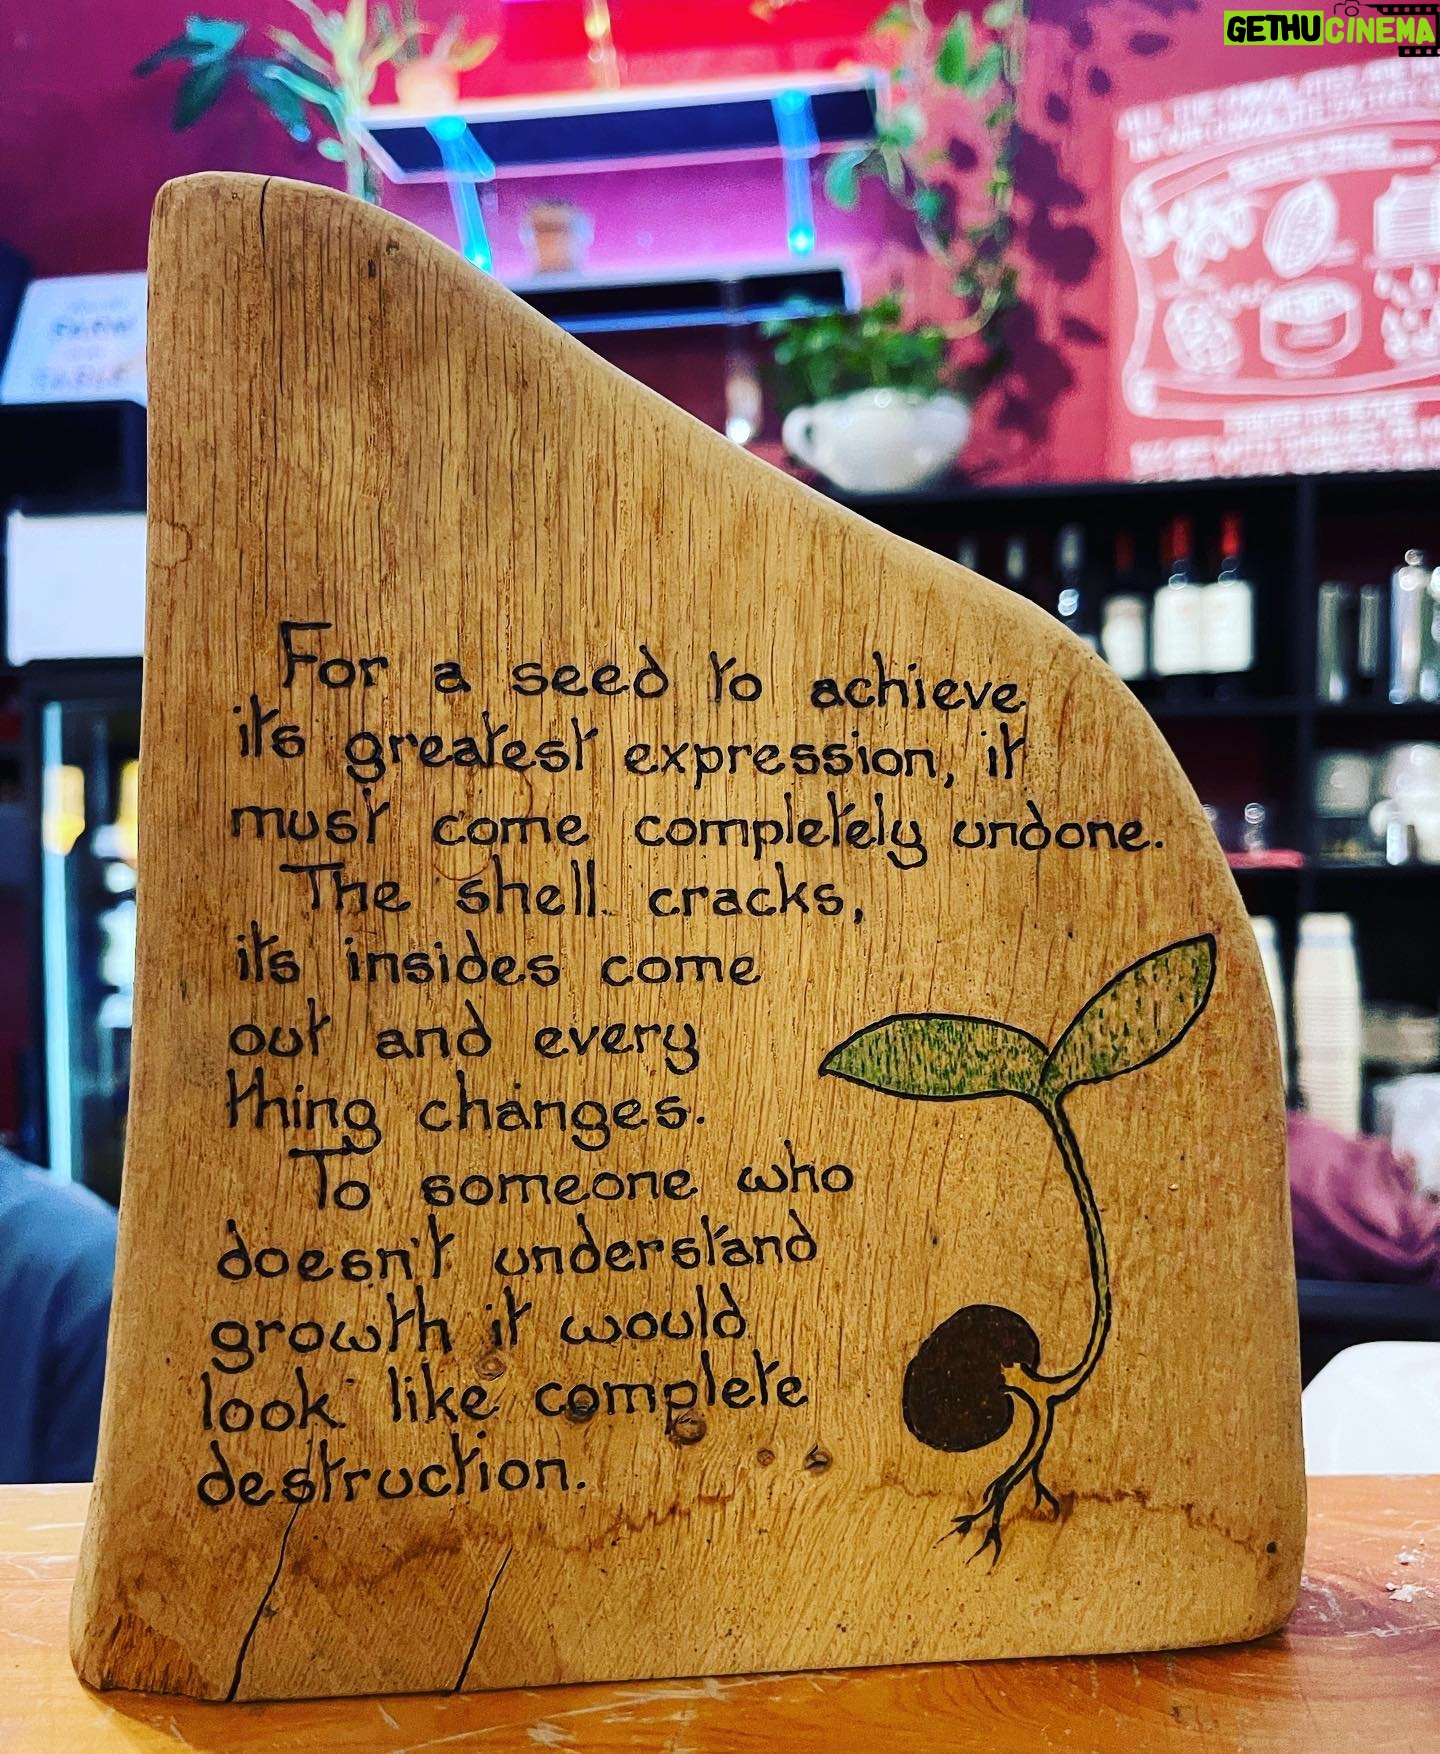 GETHUCINEMA
For a seed to achieve
its greatest expression, it
must come completely undone.
The shell cracks,
its insides come
out and every
thing changes.
To someone who
doesn't understand
growth it would
look like complete
destruction.